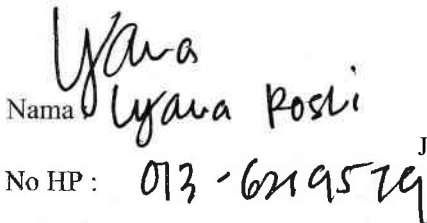 Yana
Nama : Lyana Rosli
J
No HP : 013-6219579